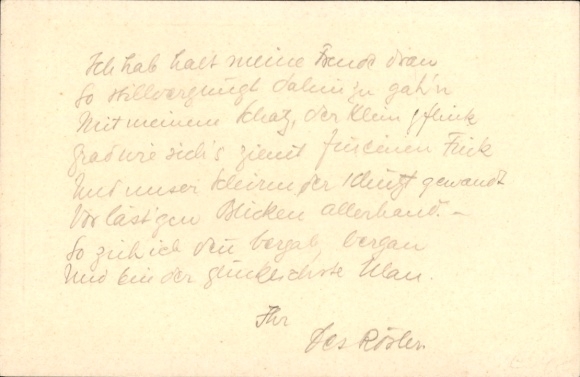 Ich hab halt meine Freude dran
So stillvergnügt dahin zu gah'n
Mit meinem Schatz, der klein, flink
grad wie sich's ziemt für einen Fink
Und unser Schirm, der schützt gewandt
Vor lästigen Blicken allerhand. –
So zieh ich den bergab, bergan
Und bin der glücklichste Man.
Ihr
Rösler